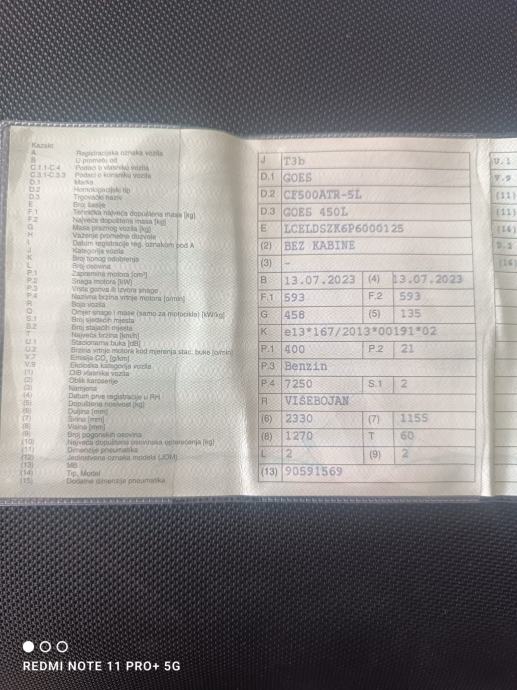 Kazalo:
A Registracijska oznaka vozila
B U prometu od
C.1.1-C.4 Podaci o vlasniku vozila
C.3.1-C.3.3 Podaci o korisniku vozila
D.1 Marka
D.2 Homologacijski tip
D.3 Trgovački naziv
E Broj šasije
F.1 Tehnička najveća dopuštena masa [kg]
F.2 Najveća dopuštena masa [kg]
G Masa praznog vozila [kg]
H Važenje prometne dozvole
I Datum registracije reg. oznakom pod A
J Kategorija vozila
K Broj tipnog odobrenja
L Broj osovina
P.1 Zapremina motora [cm³]
P.2 Snaga motora [kW]
P.3 Vrsta goriva ili izvora snage
P.4 Nazivna brzina vrtnje motora [o/min]
R Boja vozila
Q Omjer snage i mase (samo za motocikle) [kW/kg]
S.1 Broj sjedećih mjesta
S.2 Broj stajaćih mjesta
T Najveća brzina [km/h]
U.1 Stacionarna buka [dB]
U.2 Brzina vrtnje motora kod mjerenja stac. buke [o/min]
V.7 Emisija CO₂ [g/km]
V.9 Ekološka kategorija vozila
(1) OIB vlasnika vozila
(2) Oblik karoserije
(3) Namjena
(4) Datum prve registracije u RH
(5) Dopuštena nosivost [kg]
(6) Duljina [mm]
(7) Širina [mm]
(8) Visina [mm]
(9) Broj pogonskih osovina
(10) Najveća dopuštena osovinska opterećenja [kg]
(11) Dimenzije pneumatika
(12) Jedinstvena oznaka modela (JOM)
(13) MB
(14) Tip, Model
(15) Dodatne dimenzije pneumatika
J T3b
D.1 GOES
D.2 CF500ATR-5L
D.3 GOES 450L
E LCELDSZK6P6000125
(2) BEZ KABINE
(3) -
B 13.07.2023 (4) 13.07.2023
F.1 593 F.2 593
G 458 (5) 135
K e13*167/2013*00191*02
P.1 400 P.2 21
P.3 Benzin
P.4 7250 S.1 2
R VIŠEBOJAN
(6) 2330 (7) 1155
(8) 1270 T 60
L 2 (9) 2
(13) 90591569
U.1
V.9
(11)
(11)
(14)
(16)
REDMI NOTE 11 PRO+ 5G